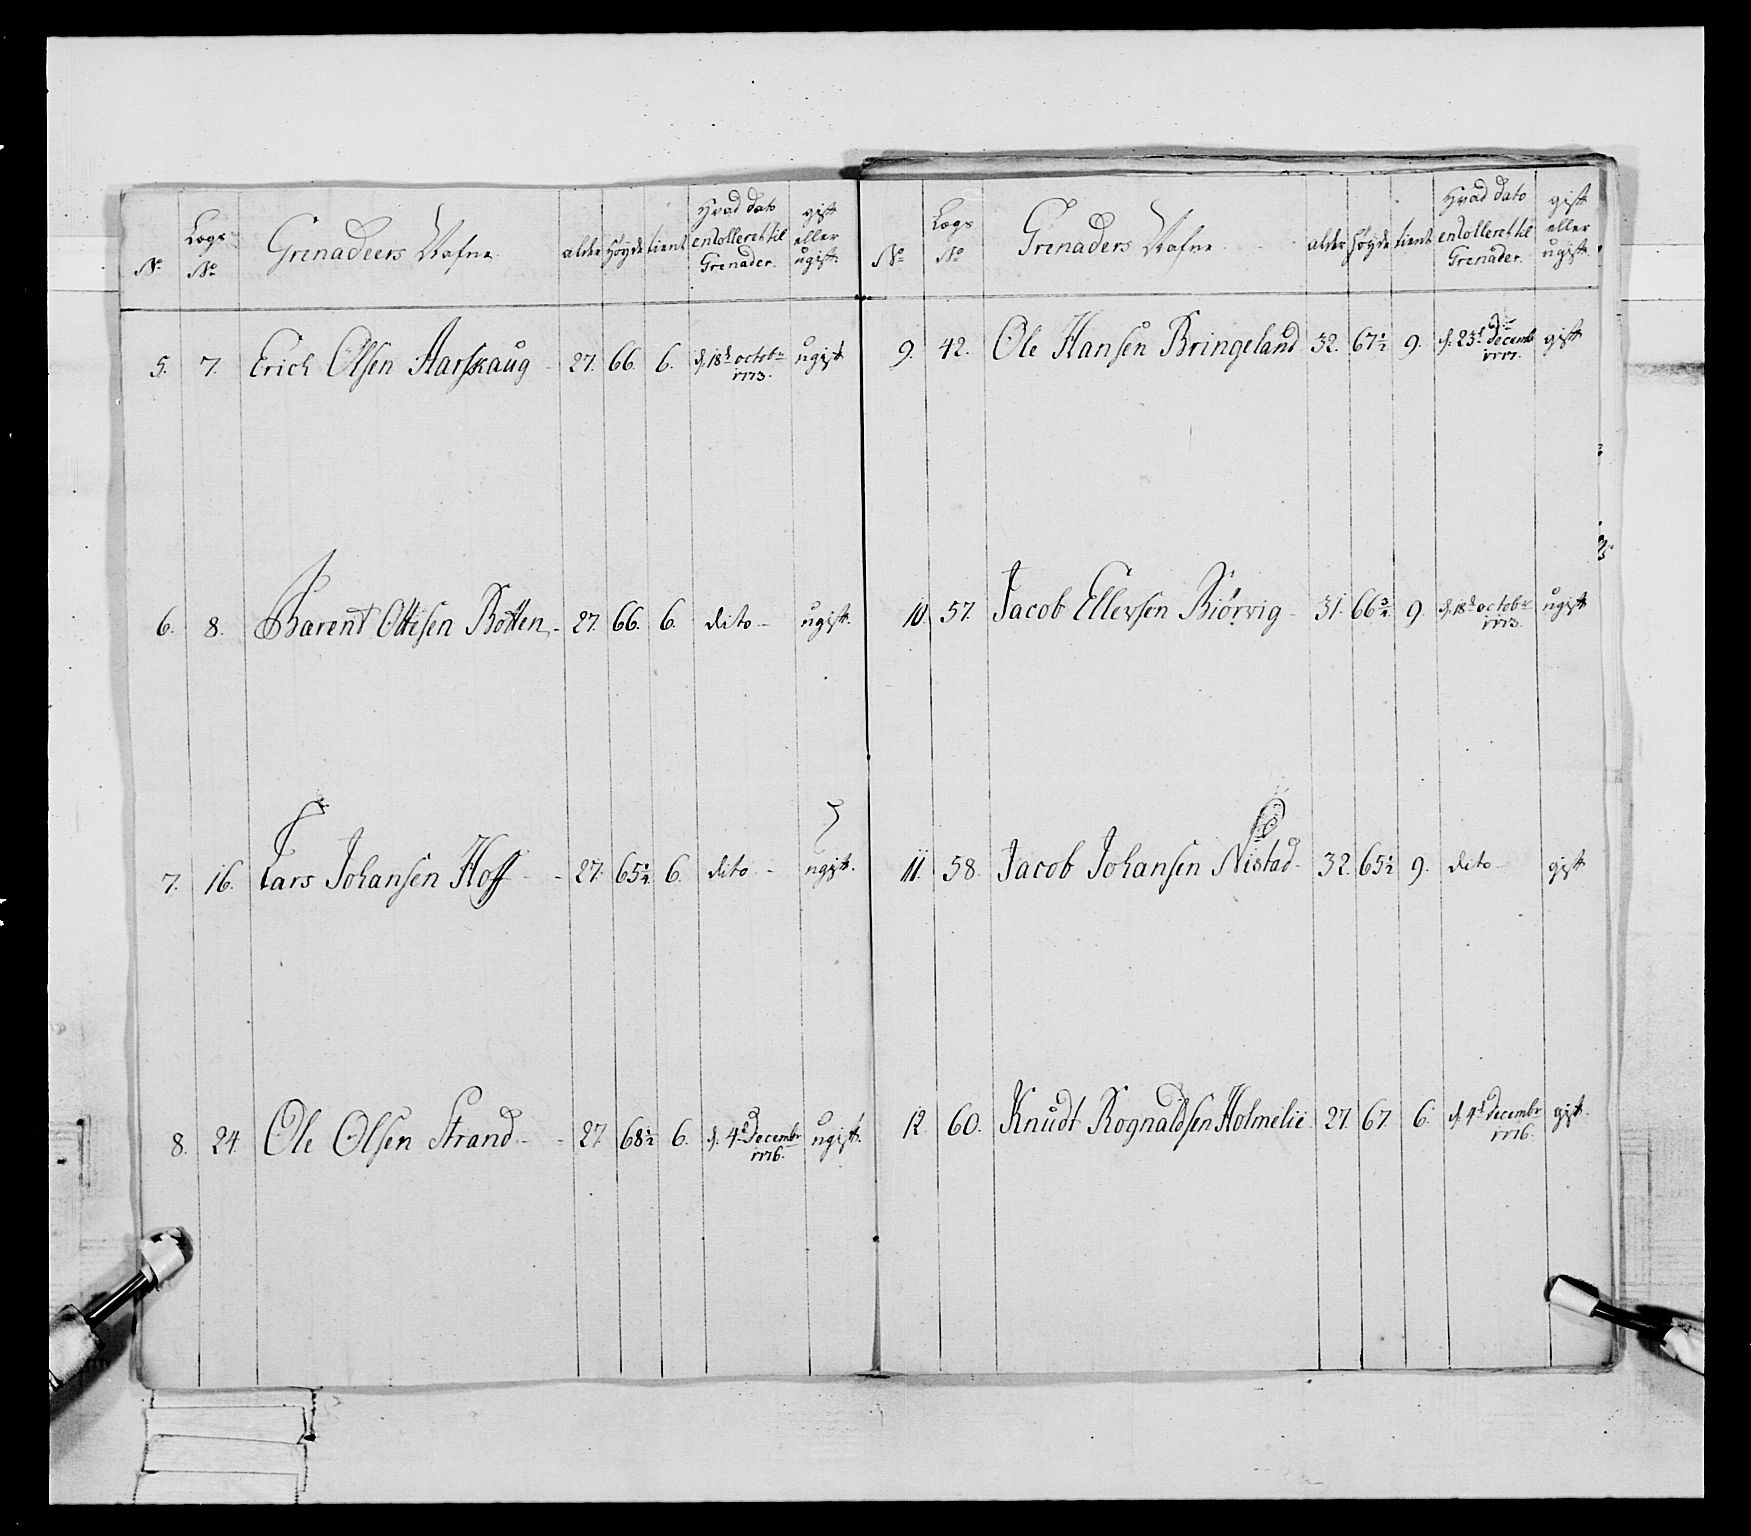 No Logs No Grenadeers Nafne alder Höyde tient Hvad dato enrolleret til Grenader. gift eller ugift.
5. 7. Erich Olsen Aarskaug 27. 66. 6. d. 18d octobr 1773. ugift
6. 8. Barent Ottesen Botten 27. 66. 6. dito ugift.
7. 16. Lars Johansen Hoff 27. 65 1/4 6. dito ugift.
8. 24. Ole Olsen Strand 27. 68 1/2 6. d. 4d Decembr 1776. ugift.
No Logs No Grenaders Nafne alder Höyde tient Hvad dato enrolleret til Grenader. gift eller ugift.
9. 42. Ole Hansen Bringeland 32. 67 1/2 9. d. 23d Decembr 1777. gift
10. 57. Jacob Ellevsen Biörvig 31. 66 3/4 9. d. 18d octobr 1773. ugift
11. 58. Jacob Johansen Nistad 32. 65 1/2 9. dito gift
12. 60. Knudt Rognaldsen Holmelii 27. 67. 6. d. 4d decembr 1776. gift.